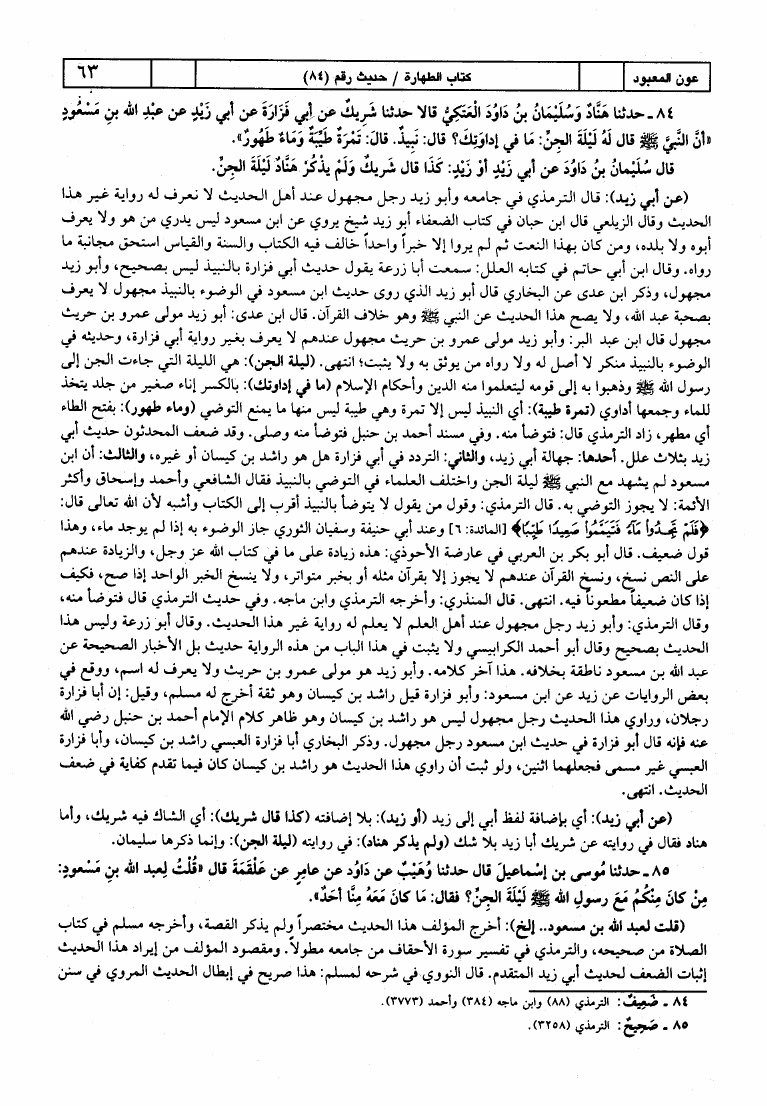 عون المعبود
كتاب الطهارة / حديث رقم (٨٤)
٦٣
٨٤ ـ حدثنا هَنَّادٌ وَسُلَيْمَانُ بنُ دَاوُدَ الْعَتَكِيُّ قالا حدثنا شَرِيكٌ عن أَبِي فَزَارَةَ عن أَبي زَيْدٍ عن عبْدِ الله بنِ مَسْعُودٍ
«أَنَّ النَّبيَّ ﷺ قال لَهُ لَيْلَةَ الْجِنِّ: مَا في إدَاوَتِكَ؟ قال: نَبِيذٌ. قالَ: تَمْرَةٌ طَيِّبَةٌ وَمَاءٌ طَهُورٌ».
قال سُلَيْمانُ بنُ دَاوُدَ عن أبي زَيْدٍ أوْ زَيْدٍ: كَذَا قال شَرِيكٌ وَلَمْ يذْكُرْ هَنَّادٌ لَيْلَةَ الْجِنِّ.
(عن أبي زيد): قال الترمذي في جامعه وأبو زيد رجل مجهول عند أهل الحديث لا نعرف له رواية غير هذا
الحديث وقال الزيلعي قال ابن حبان في كتاب الضعفاء أبو زيد شيخ يروي عن ابن مسعود ليس يدري من هو ولا يعرف
أبوه ولا بلده، ومن كان بهذا النعت ثم لم يروا إلا خبراً واحداً خالف فيه الكتاب والسنة والقياس استحق مجانبة ما
رواه. وقال ابن أبي حاتم في كتابه العلل: سمعت أبا زرعة يقول حديث أبي فزارة بالنبيذ ليس بصحيح، وأبو زيد
مجهول، وذكر ابن عدى عن البخاري قال أبو زيد الذي روى حديث ابن مسعود في الوضوء بالنبيذ مجهول لا يعرف
بصحبة عبد الله، ولا يصح هذا الحديث عن النبي ﷺ وهو خلاف القرآن. قال ابن عدى: أبو زيد مولى عمرو بن حريث
مجهول قال ابن عبد البر: وأبو زيد مولى عمرو بن حريث مجهول عندهم لا يعرف بغير رواية أبي فزارة، وحديثه في
الوضوء بالنبيذ منكر لا أصل له ولا رواه من يوثق به ولا يثبت؛ انتهى. (ليلة الجن): هي الليلة التي جاءت الجن إلى
رسول الله ﷺ وذهبوا به إلى قومه ليتعلموا منه الدين وأحكام الإسلام (ما في إداوتك): بالكسر إناء صغير من جلد يتخذ
للماء وجمعها أداوي (تمرة طيبة): أي النبيذ ليس إلا تمرة وهي طيبة ليس منها ما يمنع التوضي (وماء طهور): بفتح الطاء
أي مطهر، زاد الترمذي قال: فتوضأ منه. وفي مسند أحمد بن حنبل فتوضأ منه وصلى. وقد ضعف المحدثون حديث أبي
زيد بثلاث علل. أحدها: جهالة أبي زيد، والثاني: التردد في أبي فزارة هل هو راشد بن كيسان أو غيره، والثالث: أن ابن
مسعود لم يشهد مع النبي ﷺ ليلة الجن واختلف العلماء في التوضي بالنبيذ فقال الشافعي وأحمد وإسحاق وأكثر
الأئمة: لا يجوز التوضي به. قال الترمذي: وقول من يقول لا يتوضأ بالنبيذ أقرب إلى الكتاب وأشبه لأن الله تعالى قال:
﴿فَلَمْ تَجِدُواْ مَآءً فَتَيَمَّمُواْ صَعِيدًا طَيِّبًا﴾ [المائدة: ٦] وعند أبي حنيفة وسفيان الثوري جاز الوضوء به إذا لم يوجد ماء، وهذا
قول ضعيف. قال أبو بكر بن العربي في عارضة الأحوذي: هذه زيادة على ما في كتاب الله عز وجل، والزيادة عندهم
على النص نسخ، ونسخ القرآن عندهم لا يجوز إلا بقرآن مثله أو بخبر متواتر، ولا ينسخ الخبر الواحد إذا صح، فكيف
إذا كان ضعيفاً مطعوناً فيه. انتهى. قال المنذري: وأخرجه الترمذي وابن ماجه. وفي حديث الترمذي قال فتوضأ منه،
وقال الترمذي: وأبو زيد رجل مجهول عند أهل العلم لا يعلم له رواية غير هذا الحديث. وقال أبو زرعة وليس هذا
الحديث بصحيح وقال أبو أحمد الكرابيسي ولا يثبت في هذا الباب من هذه الرواية حديث بل الأخبار الصحيحة عن
عبد الله بن مسعود ناطقة بخلافه. هذا آخر كلامه. وأبو زيد هو مولى عمرو بن حريث ولا يعرف له اسم، ووقع في
بعض الروايات عن زيد عن ابن مسعود: وأبو فزارة قيل راشد بن كيسان وهو ثقة أخرج له مسلم، وقيل: إن أبا فزارة
رجلان، وراوي هذا الحديث رجل مجهول ليس هو راشد بن كيسان وهو ظاهر كلام الإمام أحمد بن حنبل رضي الله
عنه فإنه قال أبو فزارة في حديث ابن مسعود رجل مجهول. وذكر البخاري أبا فزارة العبسي راشد بن كيسان، وأبا فزارة
العبسي غير مسمى فجعلهما اثنين، ولو ثبت أن راوي هذا الحديث هو راشد بن كيسان كان فيما تقدم كفاية في ضعف
الحديث. انتهى.
(عن أبي زيد): أي بإضافة لفظ أبي إلى زيد (أو زيد): بلا إضافته (كذا قال شريك): أي الشاك فيه شريك، وأما
هناد فقال في روايته عن شريك أبا زيد بلا شك (ولم يذكر هناد): في روايته (ليلة الجن): وإنما ذكرها سليمان.
٨٥ ـ حدثنا مُوسى بن إسْماعيلَ قال حدثنا وُهَيْبٌ عن دَاوُد عن عامِرٍ عن عَلْقَمَةَ قال «قُلْتُ لِعبد الله بن مَسْعُودٍ:
مِنْ كَانَ مِنْكُمْ مَعَ رسولِ الله ﷺ لَيْلَةَ الْجِنِّ؟ فقال: مَا كانَ مَعَهُ مِنَّا أَحَدٌ».
(قلت لعبد الله بن مسعود.. إلخ): أخرج المؤلف هذا الحديث مختصراً ولم يذكر القصة، وأخرجه مسلم في كتاب
الصلاة من صحيحه، والترمذي في تفسير سورة الأحقاف من جامعه مطولاً. ومقصود المؤلف من إيراد هذا الحديث
إثبات الضعف لحديث أبي زيد المتقدم. قال النووي في شرحه لمسلم: هذا صريح في إبطال الحديث المروي في سنن
٨٤ ـ ضَعِيفٌ: الترمذي (٨٨) وابن ماجه (٣٨٤) وأحمد (٣٧٧٣).
٨٥ ـ صَحِيحٌ: الترمذي (٣٢٥٨).